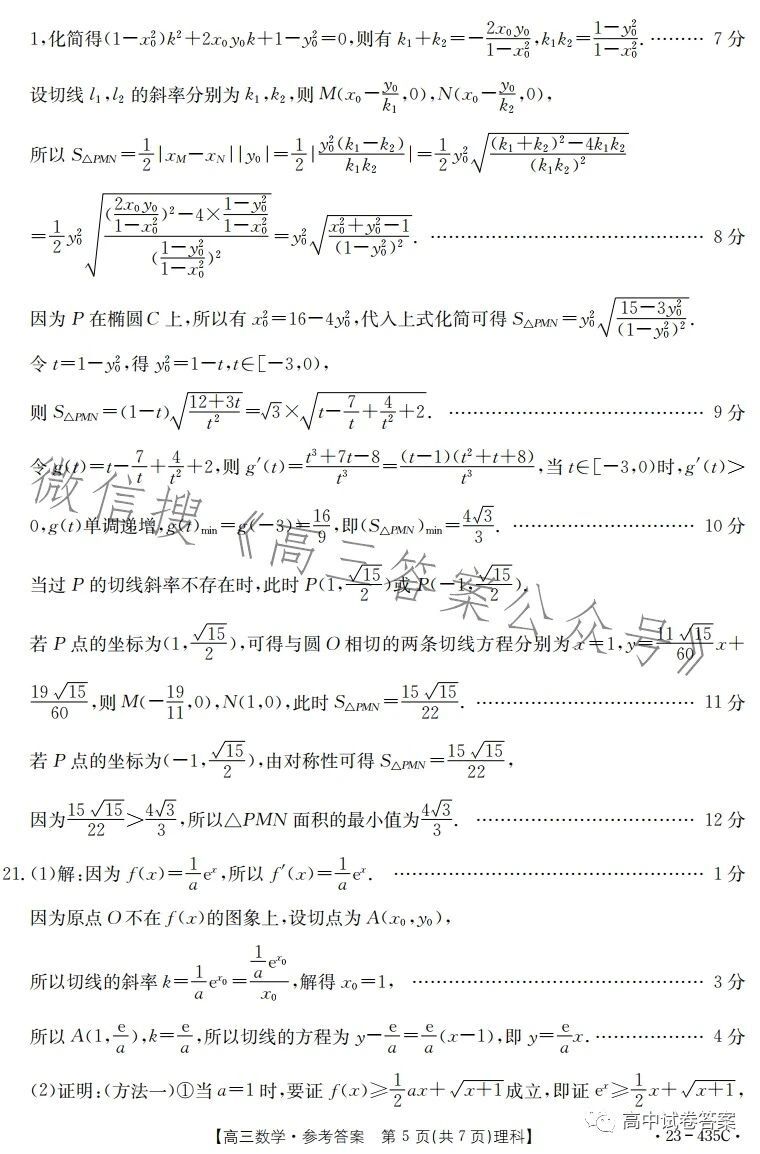 1,化简得(1-x₀²)k²+2x₀y₀k+1-y₀²=0,则有 k₁+k₂=-\frac{2x₀y₀}{1-x₀²},k₁k₂=\frac{1-y₀²}{1-x₀²}. ……… 7分
设切线 l₁,l₂ 的斜率分别为 k₁,k₂,则 M(x₀-\frac{y₀}{k₁},0),N(x₀-\frac{y₀}{k₂},0),
所以 S△PMN=\frac{1}{2}|x_M-x_N||y₀|=\frac{1}{2}|\frac{y₀²(k₁-k₂)}{k₁k₂}|=\frac{1}{2}y₀²\sqrt{\frac{(k₁+k₂)²-4k₁k₂}{(k₁k₂)²}}
=\frac{1}{2}y₀²\sqrt{\frac{(\frac{2x₀y₀}{1-x₀²})²-4×\frac{1-y₀²}{1-x₀²}}{(\frac{1-y₀²}{1-x₀²})²}}=y₀²\sqrt{\frac{x₀²+y₀²-1}{(1-y₀²)²}}. ……………………………………… 8分
因为 P 在椭圆 C 上,所以有 x₀²=16-4y₀²,代入上式化简可得 S△PMN=y₀²\sqrt{\frac{15-3y₀²}{(1-y₀²)²}}.
令 t=1-y₀²,得 y₀²=1-t,t∈[-3,0),
则 S△PMN=(1-t)\sqrt{\frac{12+3t}{t²}}=\sqrt{3}×\sqrt{t-\frac{7}{t}+\frac{4}{t²}+2}. …………………………………… 9分
令 g(t)=t-\frac{7}{t}+\frac{4}{t²}+2,则 g′(t)=\frac{t³+7t-8}{t³}=\frac{(t-1)(t²+t+8)}{t³},当 t∈[-3,0)时,g′(t)>
0,g(t)单调递增,g(t)min=g(-3)=\frac{16}{9},即(S△PMN)min=\frac{4\sqrt{3}}{3}. ………………………… 10分
当过 P 的切线斜率不存在时,此时 P(1,\frac{\sqrt{15}}{2})或 P(-1,\frac{\sqrt{15}}{2}).
若 P 点的坐标为(1,\frac{\sqrt{15}}{2}),可得与圆 O 相切的两条切线方程分别为 x=1,y=\frac{11\sqrt{15}}{60}x+
\frac{19\sqrt{15}}{60},则 M(-\frac{19}{11},0),N(1,0),此时 S△PMN=\frac{15\sqrt{15}}{22}. ………………………………… 11分
若 P 点的坐标为(-1,\frac{\sqrt{15}}{2}),由对称性可得 S△PMN=\frac{15\sqrt{15}}{22},
因为\frac{15\sqrt{15}}{22}>\frac{4\sqrt{3}}{3},所以△PMN 面积的最小值为\frac{4\sqrt{3}}{3}. ……………………………… 12分
21. (1)解:因为 f(x)=\frac{1}{a}eˣ,所以 f′(x)=\frac{1}{a}eˣ. …………………………………………… 1分
因为原点 O 不在 f(x)的图象上,设切点为 A(x₀,y₀),
所以切线的斜率 k=\frac{1}{a}e^{x₀}=\frac{\frac{1}{a}e^{x₀}}{x₀},解得 x₀=1, ………………………………………… 3分
所以 A(1,\frac{e}{a}),k=\frac{e}{a},所以切线的方程为 y-\frac{e}{a}=\frac{e}{a}(x-1),即 y=\frac{e}{a}x. ……………… 4分
(2)证明:(方法一)①当 a=1 时,要证 f(x)≥\frac{1}{2}ax+\sqrt{x+1}成立,即证 eˣ≥\frac{1}{2}x+\sqrt{x+1},
【高三数学·参考答案 第 5 页(共 7 页)理科】
·23-435C·
微信搜《高三答案公众号》
高中试卷答案